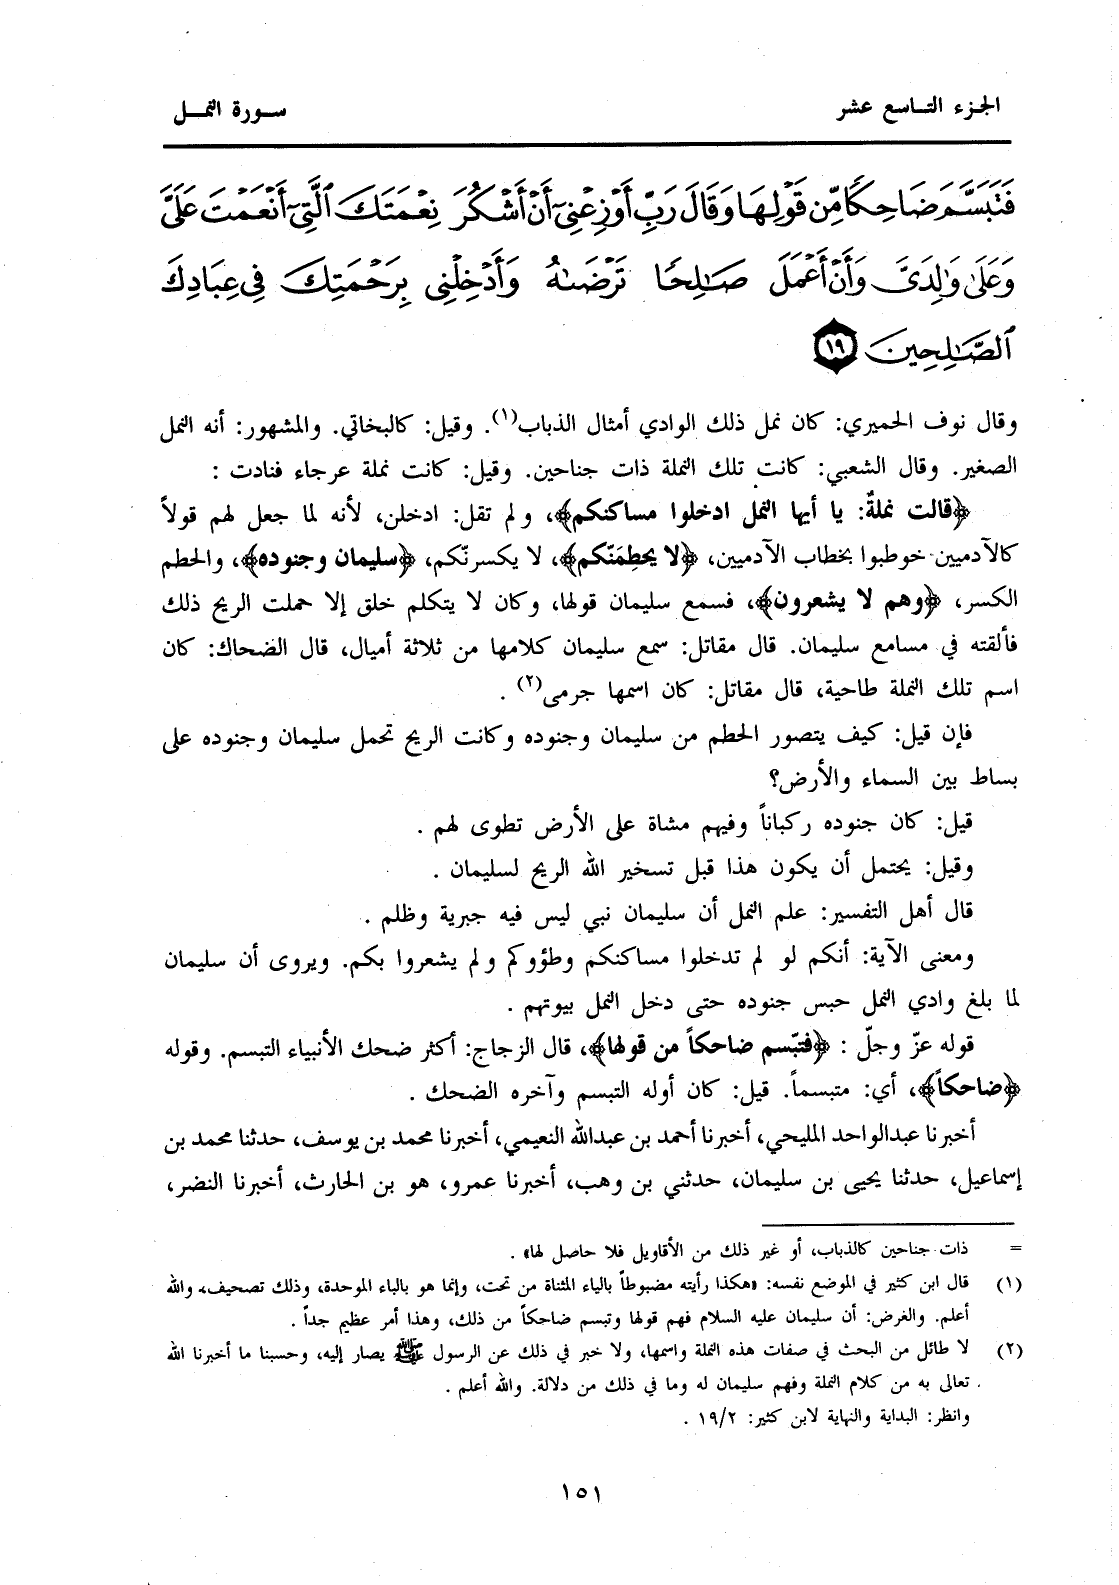 الجزء التاسع عشر
سورة النمل
فَتَبَسَّمَ ضَاحِكًا مِّن قَوْلِهَا وَقَالَ رَبِّ أَوْزِعْنِىٓ أَنْ أَشْكُرَ نِعْمَتَكَ ٱلَّتِىٓ أَنْعَمْتَ عَلَىَّ
وَعَلَىٰ وَٰلِدَىَّ وَأَنْ أَعْمَلَ صَٰلِحًا تَرْضَىٰهُ وَأَدْخِلْنِى بِرَحْمَتِكَ فِى عِبَادِكَ
ٱلصَّٰلِحِينَ ١٩
وقال نوف الحميري: كان نمل ذلك الوادي أمثال الذباب(١). وقيل: كالبخاتي. والمشهور: أنه النمل
الصغير. وقال الشعبي: كانت تلك النملة ذات جناحين. وقيل: كانت نملة عرجاء فنادت :
﴿قالت نملةٌ: يا أيها النمل ادخلوا مساكنكم﴾، ولم تقل: ادخلن، لأنه لما جعل لهم قولاً
كالآدميين خوطبوا بخطاب الآدميين، ﴿لا يحطِمَنّكم﴾، لا يكسرنّكم، ﴿سليمان وجنوده﴾، والحطم
الكسر، ﴿وهم لا يشعرون﴾، فسمع سليمان قولها، وكان لا يتكلم خلق إلا حملت الريح ذلك
فألقته في مسامع سليمان. قال مقاتل: سمع سليمان كلامها من ثلاثة أميال، قال الضحاك: كان
اسم تلك النملة طاحية، قال مقاتل: كان اسمها جرمى(٢) .
فإن قيل: كيف يتصور الحطم من سليمان وجنوده وكانت الريح تحمل سليمان وجنوده على
بساط بين السماء والأرض؟
قيل: كان جنوده ركباناً وفيهم مشاة على الأرض تطوى لهم .
وقيل: يحتمل أن يكون هذا قبل تسخير الله الريح لسليمان .
قال أهل التفسير: علم النمل أن سليمان نبي ليس فيه جبرية وظلم .
ومعنى الآية: أنكم لو لم تدخلوا مساكنكم وطؤوكم ولم يشعروا بكم. ويروى أن سليمان
لما بلغ وادي النمل حبس جنوده حتى دخل النمل بيوتهم .
قوله عزّ وجلّ : ﴿فتبّسم ضاحكاً من قولها﴾، قال الزجاج: أكثر ضحك الأنبياء التبسم. وقوله
﴿ضاحكاً﴾، أي: متبسماً. قيل: كان أوله التبسم وآخره الضحك .
أخبرنا عبدالواحد المليحي، أخبرنا أحمد بن عبدالله النعيمي، أخبرنا محمد بن يوسف، حدثنا محمد بن
إسماعيل، حدثنا يحيى بن سليمان، حدثني بن وهب، أخبرنا عمرو، هو بن الحارث، أخبرنا النضر،
= ذات جناحين كالذباب، أو غير ذلك من الأقاويل فلا حاصل لها» .
(١) قال ابن كثير في الموضع نفسه: «هكذا رأيته مضبوطاً بالياء المثناة من تحت، وإنما هو بالباء الموحدة، وذلك تصحيف» والله
أعلم. والغرض: أن سليمان عليه السلام فهم قولها وتبسم ضاحكاً من ذلك، وهذا أمر عظيم جداً .
(٢) لا طائل من البحث في صفات هذه النملة واسمها، ولا خبر في ذلك عن الرسول ﷺ يصار إليه، وحسبنا ما أخبرنا الله
تعالى به من كلام النملة وفهم سليمان له وما في ذلك من دلالة. والله أعلم .
وانظر: البداية والنهاية لابن كثير: ١٩/٢ .
١٥١